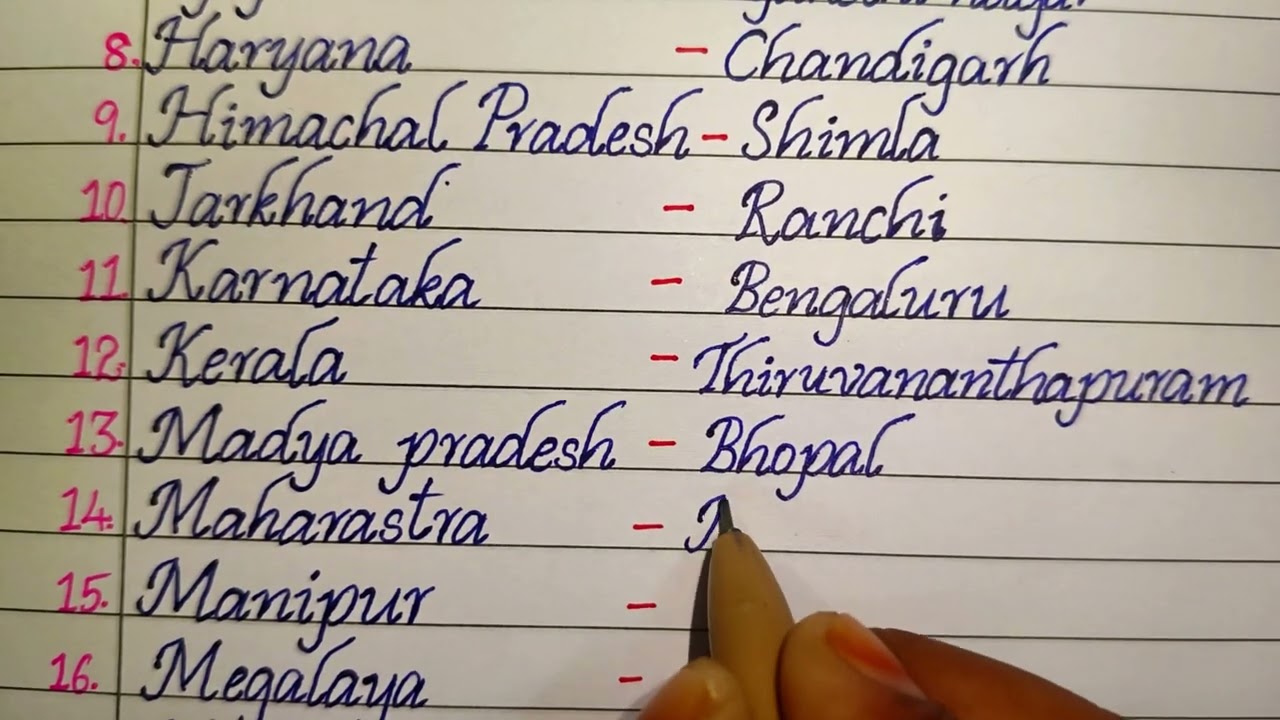 8. Haryana - Chandigarh
9. Himachal Pradesh - Shimla
10. Jarkhand - Ranchi
11. Karnataka - Bengaluru
12. Kerala - Thiruvananthapuram
13. Madya pradesh - Bhopal
14. Maharastra -
15. Manipur -
16. Megalaya -